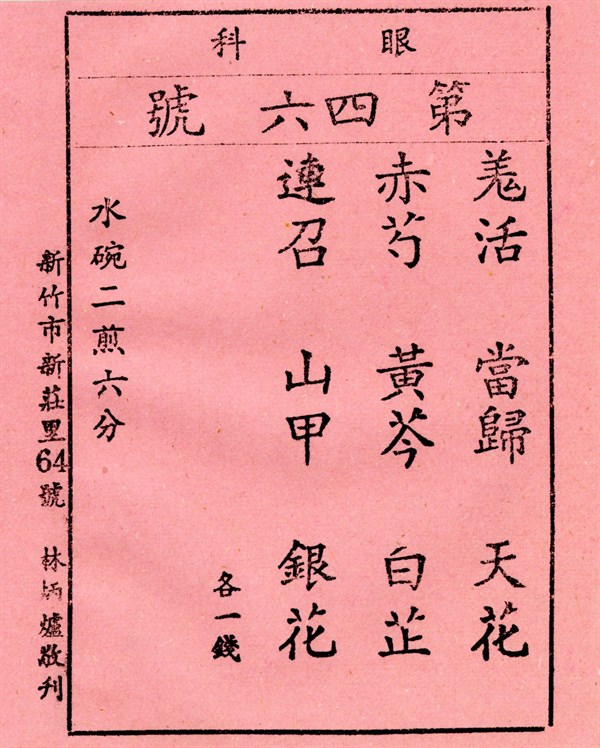 眼科
第四六號
羗活 當歸 天花
赤芍 黃芩 白芷
連召 山甲 銀花
各一錢
水碗二煎六分
新竹市新莊里64號 林炳爐敬刊